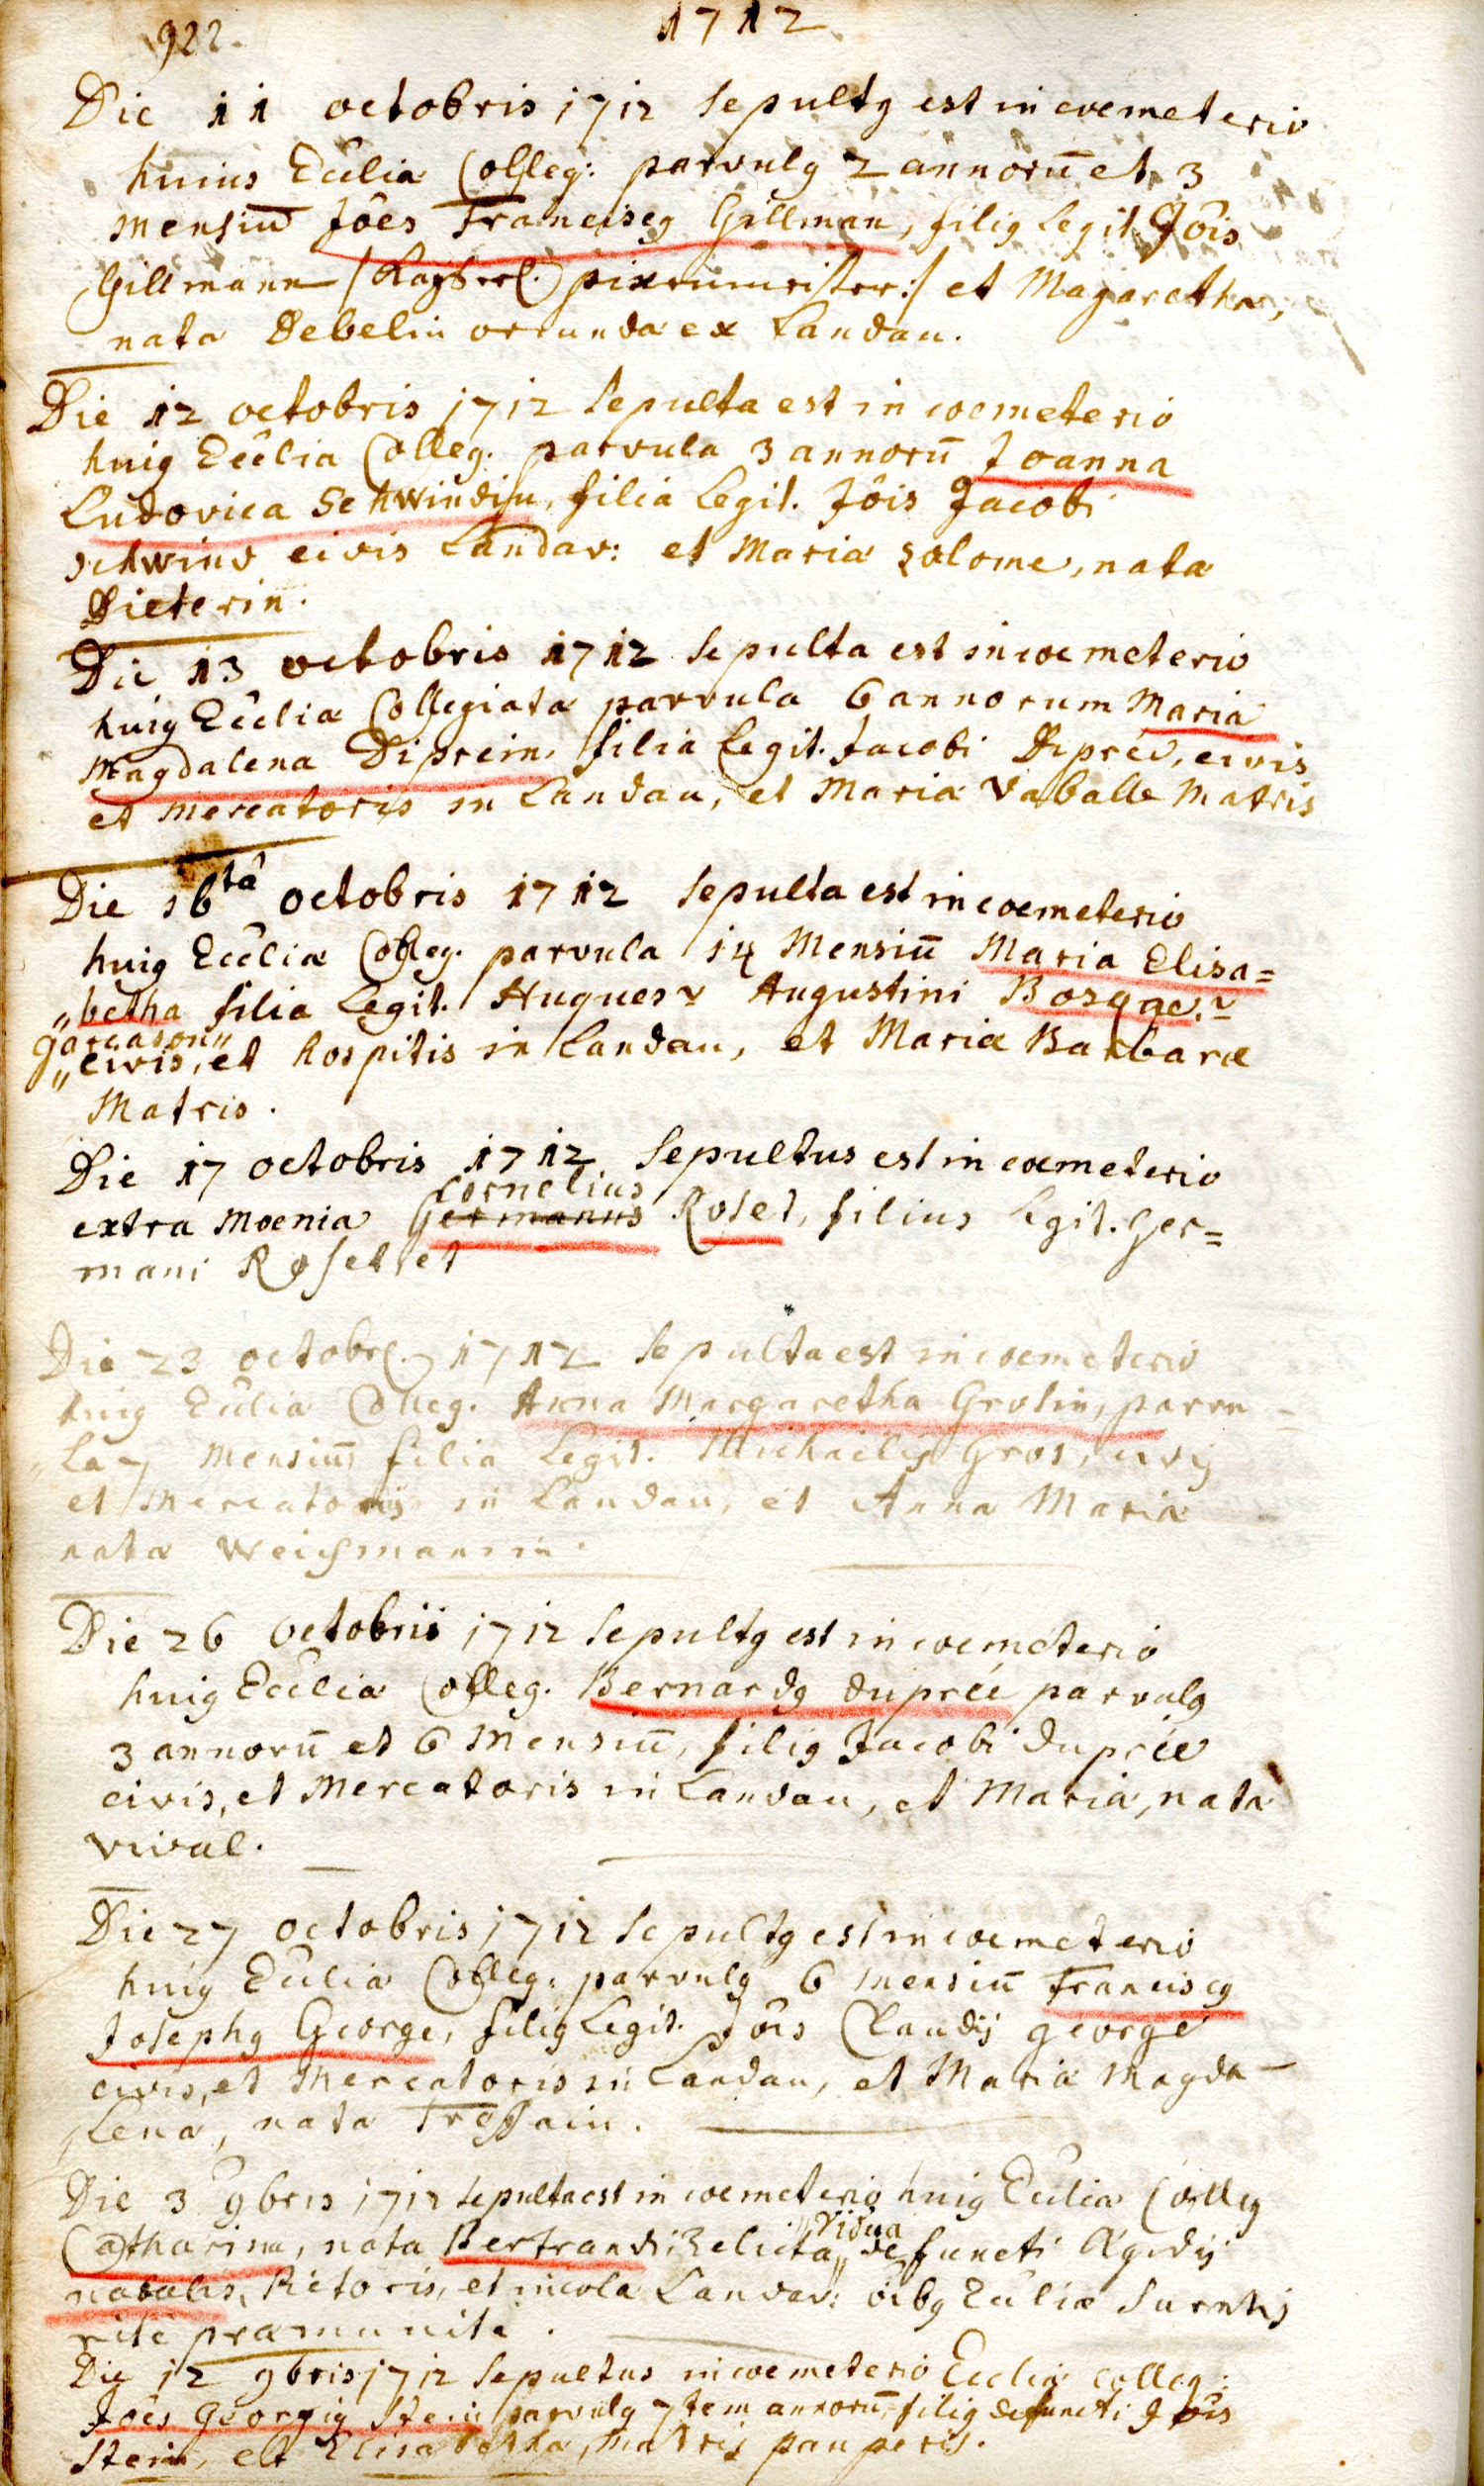 922.
1712
Die 11 octobris 1712 Sepultg est in coemeterio
huius Eccliæ Colleg: parvulg 2 annorū et 3
Mensiū Jôes Franciscg Gillman, filig Legit. Jôis
Gillmann et Magaretha,
nata Debelin oriunda ex Landau.
Die 12 octobris 1712 Sepulta est in coemeterio
huig Eccliæ Colleg. parvula 3 annorū Joanna
Ludovica Schwindin, filia Legit. Jôis Jacobi
Schwind civis Landav: et Maria Salome, nata
Dieterin.
Die 13 octobris 1712 Sepulta est in coemeterio
huig Eccliæ Collegiata parvula 6 annorum Maria
Magdalena Diprein, filia Legit. Jacobi Dipreé, civis
et Mercatoris in Landau, et Maria Vaballe Matris
Die 16tâ octobris 1712 Sepulta est in coemeterio
huig Eccliæ Colleg. parvula 14 Mensiū Maria Elisa=
"betha filia Legit. Hugues Augustini Bosque.
garcason"
"civis, et hospitis in Landau, et Maria Barbaræ
Matris.
Die 17 octobris 1712 Sepultus est in coemeterio
Cornelius
extra Moenia Germanus Roset, filius Legit. Ger=
mani Roset et
Die 23 octobr. 1712 Sepulta est in coemeterio
huig Eccliæ Colleg. Anna Margaretha Grosin, parvu=
"La 7 Mensiū filia Legit. Michaelis Gros, civis
et Mercatoris in Landau, et Anna Maria
nata Weichmannin.
Die 26 octobris 1712 Sepultg est in coemeterio
huig Eccliæ Colleg. Bernardg dupreé parvulg
3 annorū et 6 Mensiū, filig Jacobi dupreé
civis, et Mercatoris in Landau, et Maria, nata
vival.
Die 27 octobris 1712 Sepultg est in coemeterio
huig Eccliæ Colleg: parvulg 6 Mensiū Franciscg
Josephg George, filig Legit. Jôis Claudij George
civis, et Mercatoris in Landau, et Maria Magda=
Lena, nata Tressain.
Die 3 9bris 1712 Sepulta est in coemeterio huig Eccliæ Colleg
Vidua
Catharina, nata Bertrandi, Relicta defuncti Ægidij
et incola Landav: oibg Eccliæ Surntis
rite præmunita.
Die 12 9bris 1712 Sepultus in coemeterio Eccliæ Colleg:
Jôes Georgig Stein parvulg 7tem annorū, filig defuncti Jôis
Stein, et Elisabetha, Matris pauperis.